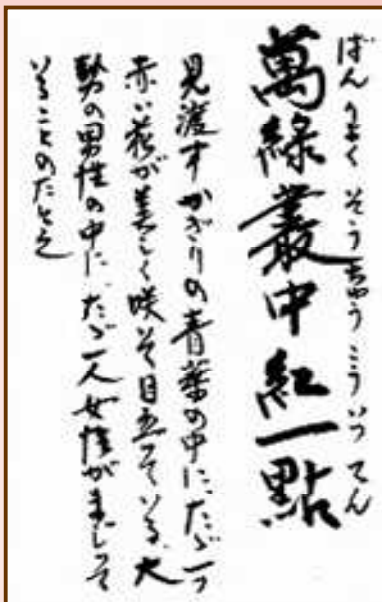 ばんりょくそうちゅうこういってん
萬綠叢中紅一點
見渡すかぎりの青葉の中に、たゞ一つ
赤い花が美しく咲いて目立っている、大
勢の男性の中に、たゞ一人女性がまじって
いることのたとえ